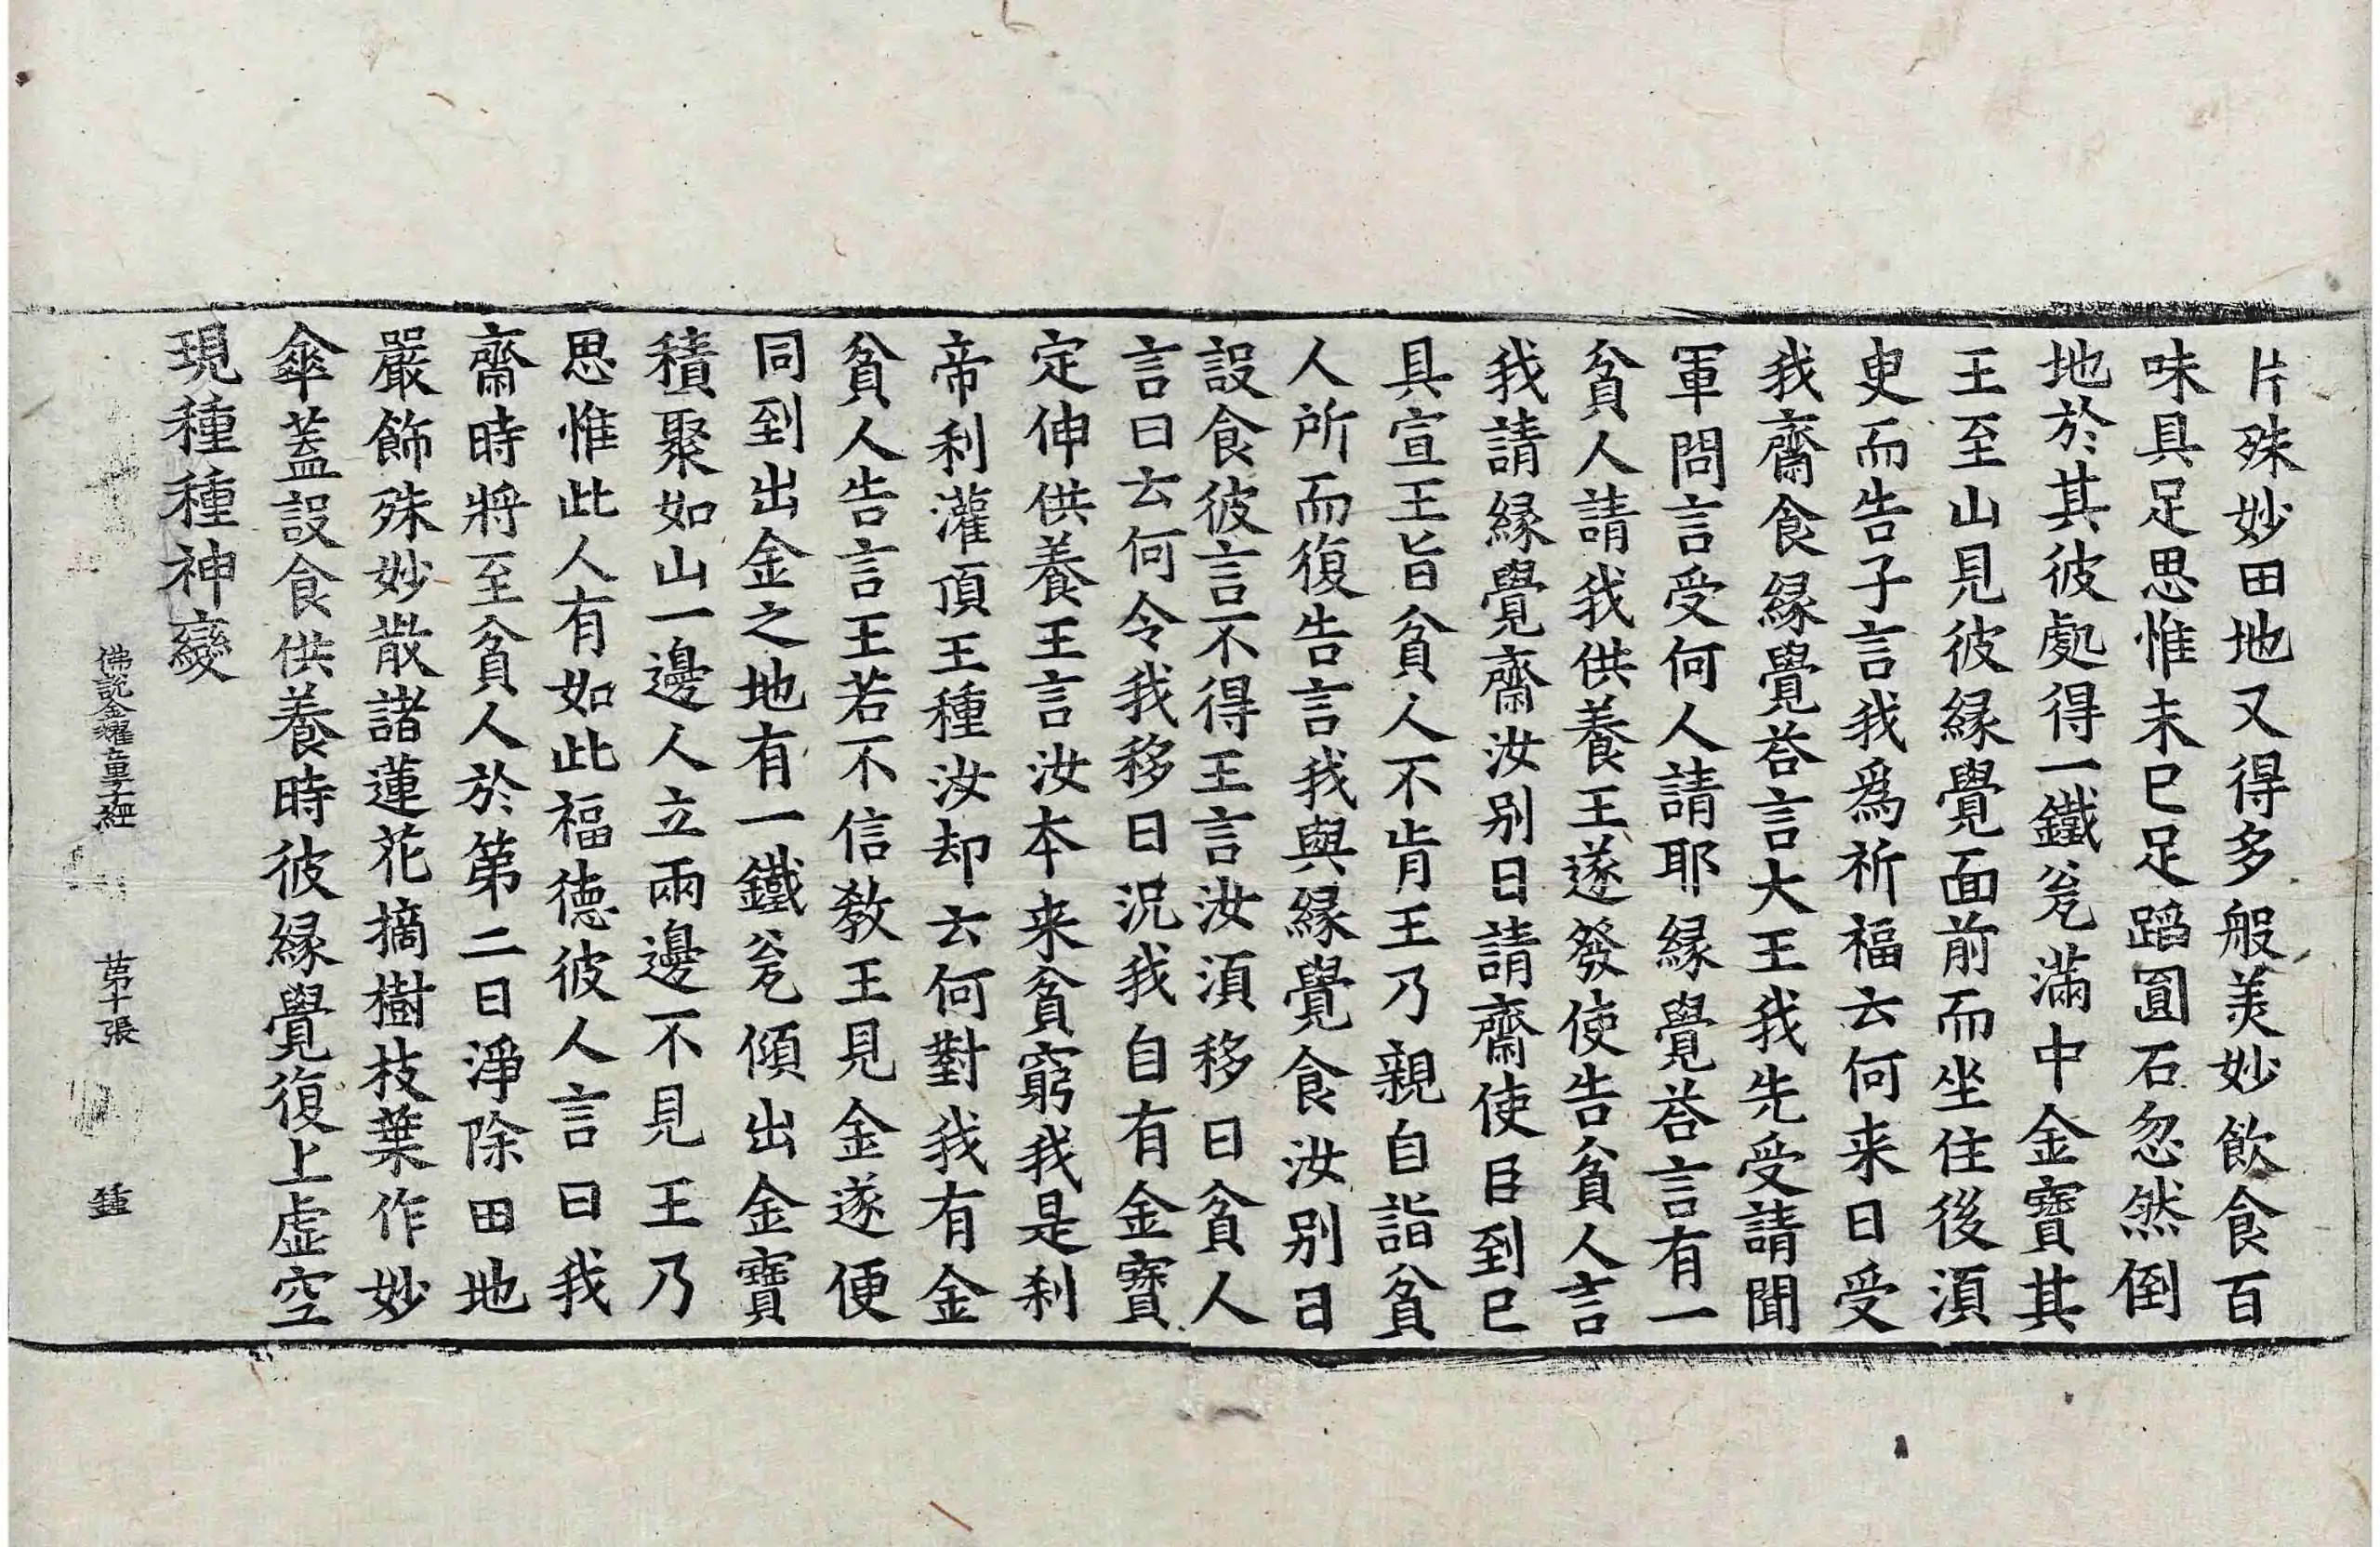 片殊妙田地又得多般美妙飲食百
味具足思惟未已足蹈圓石忽然倒
地於其彼處得一鐵瓮滿中金寶其
王至山見彼緣覺面前而坐住後須
臾而告子言我爲祈福云何来日受
我齋食緣覺荅言大王我先受請聞
軍問言受何人請耶緣覺荅言有一
貧人請我供養王遂發使告貧人言
我請緣覺齋汝別日請齋使臣到已
具宣王旨貧人不肯王乃親自詣貧
人所而復告言我與緣覺食汝別日
設食彼言不得王言汝須移日貧人
言曰云何令我移日況我自有金寶
定伸供養王言汝本来貧窮我是刹
帝利灌頂王種汝却云何對我有金
貧人告言王若不信敎王見金遂便
同到出金之地有一鐵瓮傾出金寶
積聚如山一邊人立兩邊不見王乃
思惟此人有如此福德彼人言曰我
齋時將至貧人於第二日淨除田地
嚴飾殊妙散諸蓮花摘樹枝葉作妙
傘蓋設食供養時彼緣覺復上虛空
現種種神變
佛說金耀童子經 苐十張 鍾